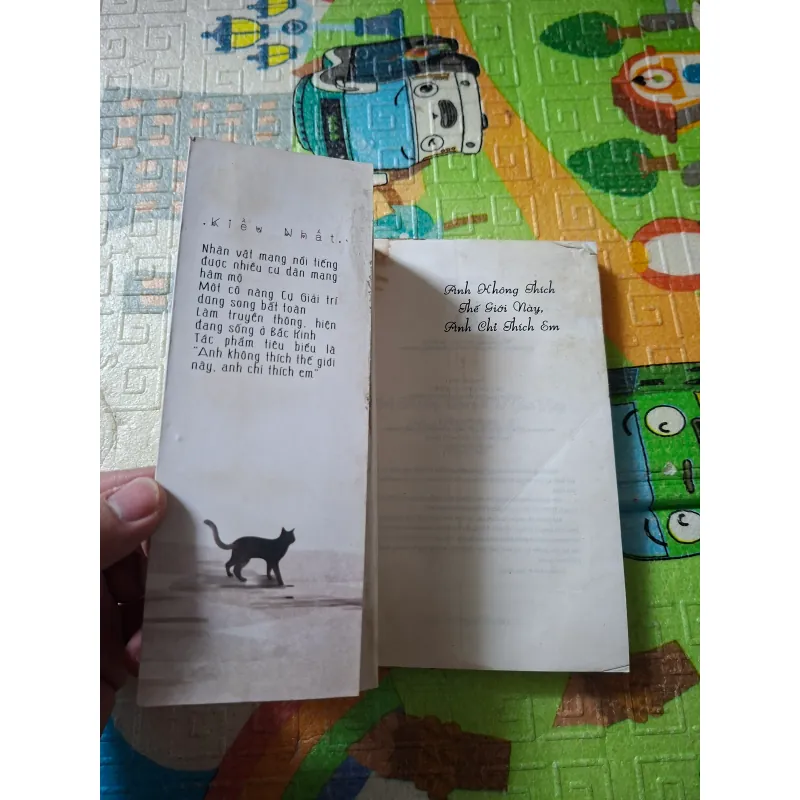 .Kiều Nhất..
Nhân vật mạng nổi tiếng
được nhiều cư dân mạng
hâm mộ
Một cô nàng Cự Giải trí
dũng song bất toàn
Làm truyền thông, hiện
đang sống ở Bắc Kinh
Tác phẩm tiêu biểu là
"Anh không thích thế giới
này, anh chỉ thích em"
Anh Không Thích
Thế Giới Này,
Anh Chỉ Thích Em